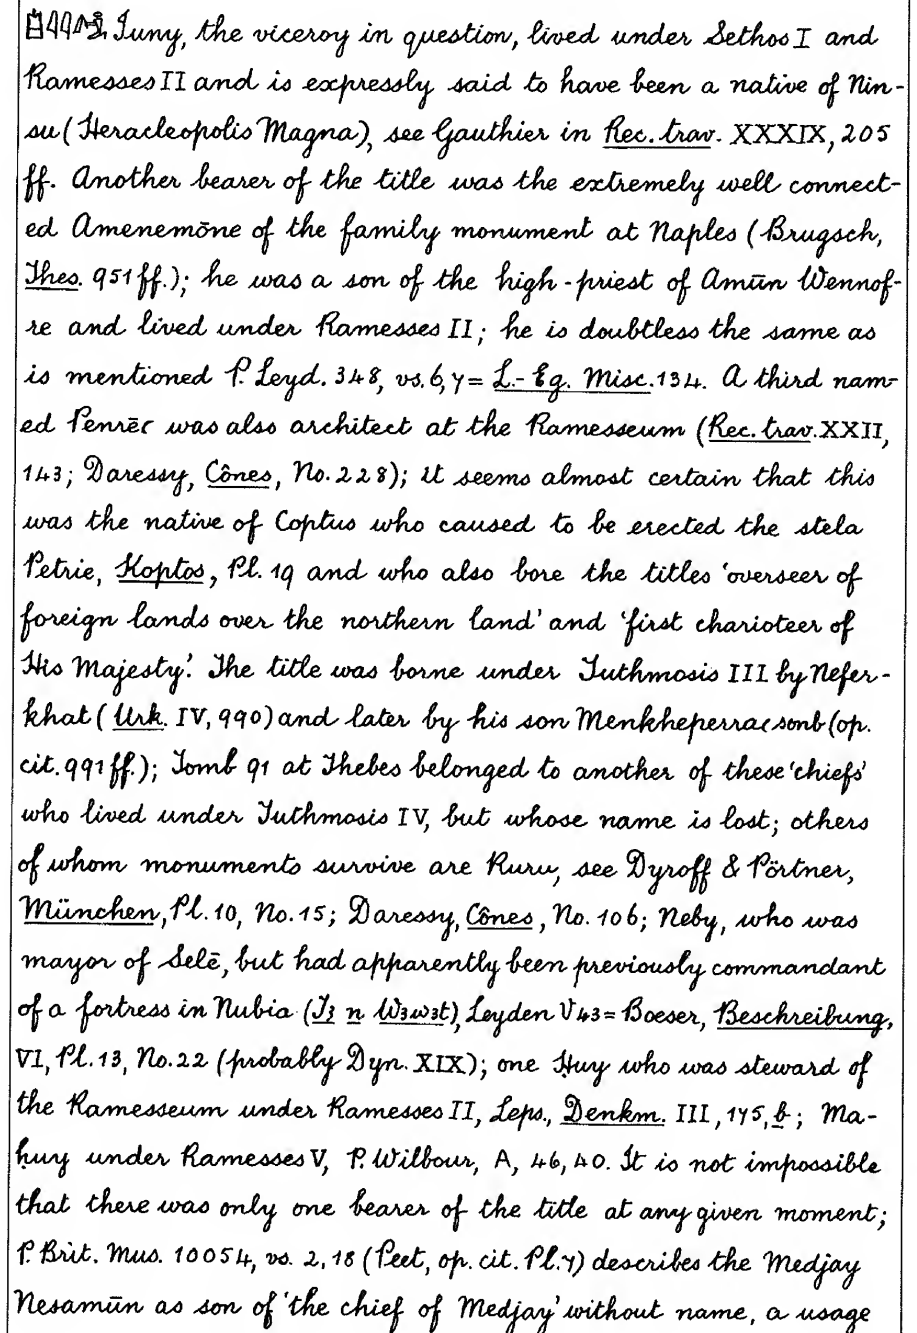 Iuny, the viceroy in question, lived under Sethos I and
Ramesses II and is expressly said to have been a native of Nin-
su (Heracleopolis Magna), see Gauthier in Rec. trav. XXXIX, 205
ff. Another bearer of the title was the extremely well connect-
ed Amenemōne of the family monument at Naples (Brugsch,
Thes. 951 ff.); he was a son of the high-priest of Amūn Wennof-
re and lived under Ramesses II; he is doubtless the same as
is mentioned P. Leyd. 348, vs. 6, 7 = L.-Eg. Misc. 134. A third nam-
ed Penrēc was also architect at the Ramesseum (Rec. trav. XXII,
143; Daressy, Cônes, No. 228); it seems almost certain that this
was the native of Coptus who caused to be erected the stela
Petrie, Koptos, Pl. 19 and who also bore the titles 'overseer of
foreign lands over the northern land' and 'first charioteer of
His Majesty'. The title was borne under Tuthmosis III by Nefer-
khat (Urk. IV, 990) and later by his son Menkheperracsonb (op.
cit. 991 ff.); Tomb 91 at Thebes belonged to another of these 'chiefs'
who lived under Tuthmosis IV, but whose name is lost; others
of whom monuments survive are Ruru, see Dyroff & Pörtner,
München, Pl. 10, No. 15; Daressy, Cônes, No. 106; Neby, who was
mayor of Selē, but had apparently been previously commandant
of a fortress in Nubia (Ṯꜣ n Wꜣwꜣt), Leyden V 43 = Boeser, Beschreibung,
VI, Pl. 13, No. 22 (probably Dyn. XIX); one Ḥuy who was steward of
the Ramesseum under Ramesses II, Leps., Denkm. III, 175, b; Ma-
ḥuy under Ramesses V, P. Wilbour, A, 46, 40. It is not impossible
that there was only one bearer of the title at any given moment;
P. Brit. Mus. 10054, vs. 2, 18 (Peet, op. cit. Pl. 7) describes the Medjay
Nesamūn as son of 'the chief of Medjay' without name, a usage